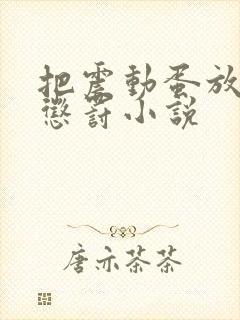 把震動蛋放
懲罰小説
唐亦茶茶